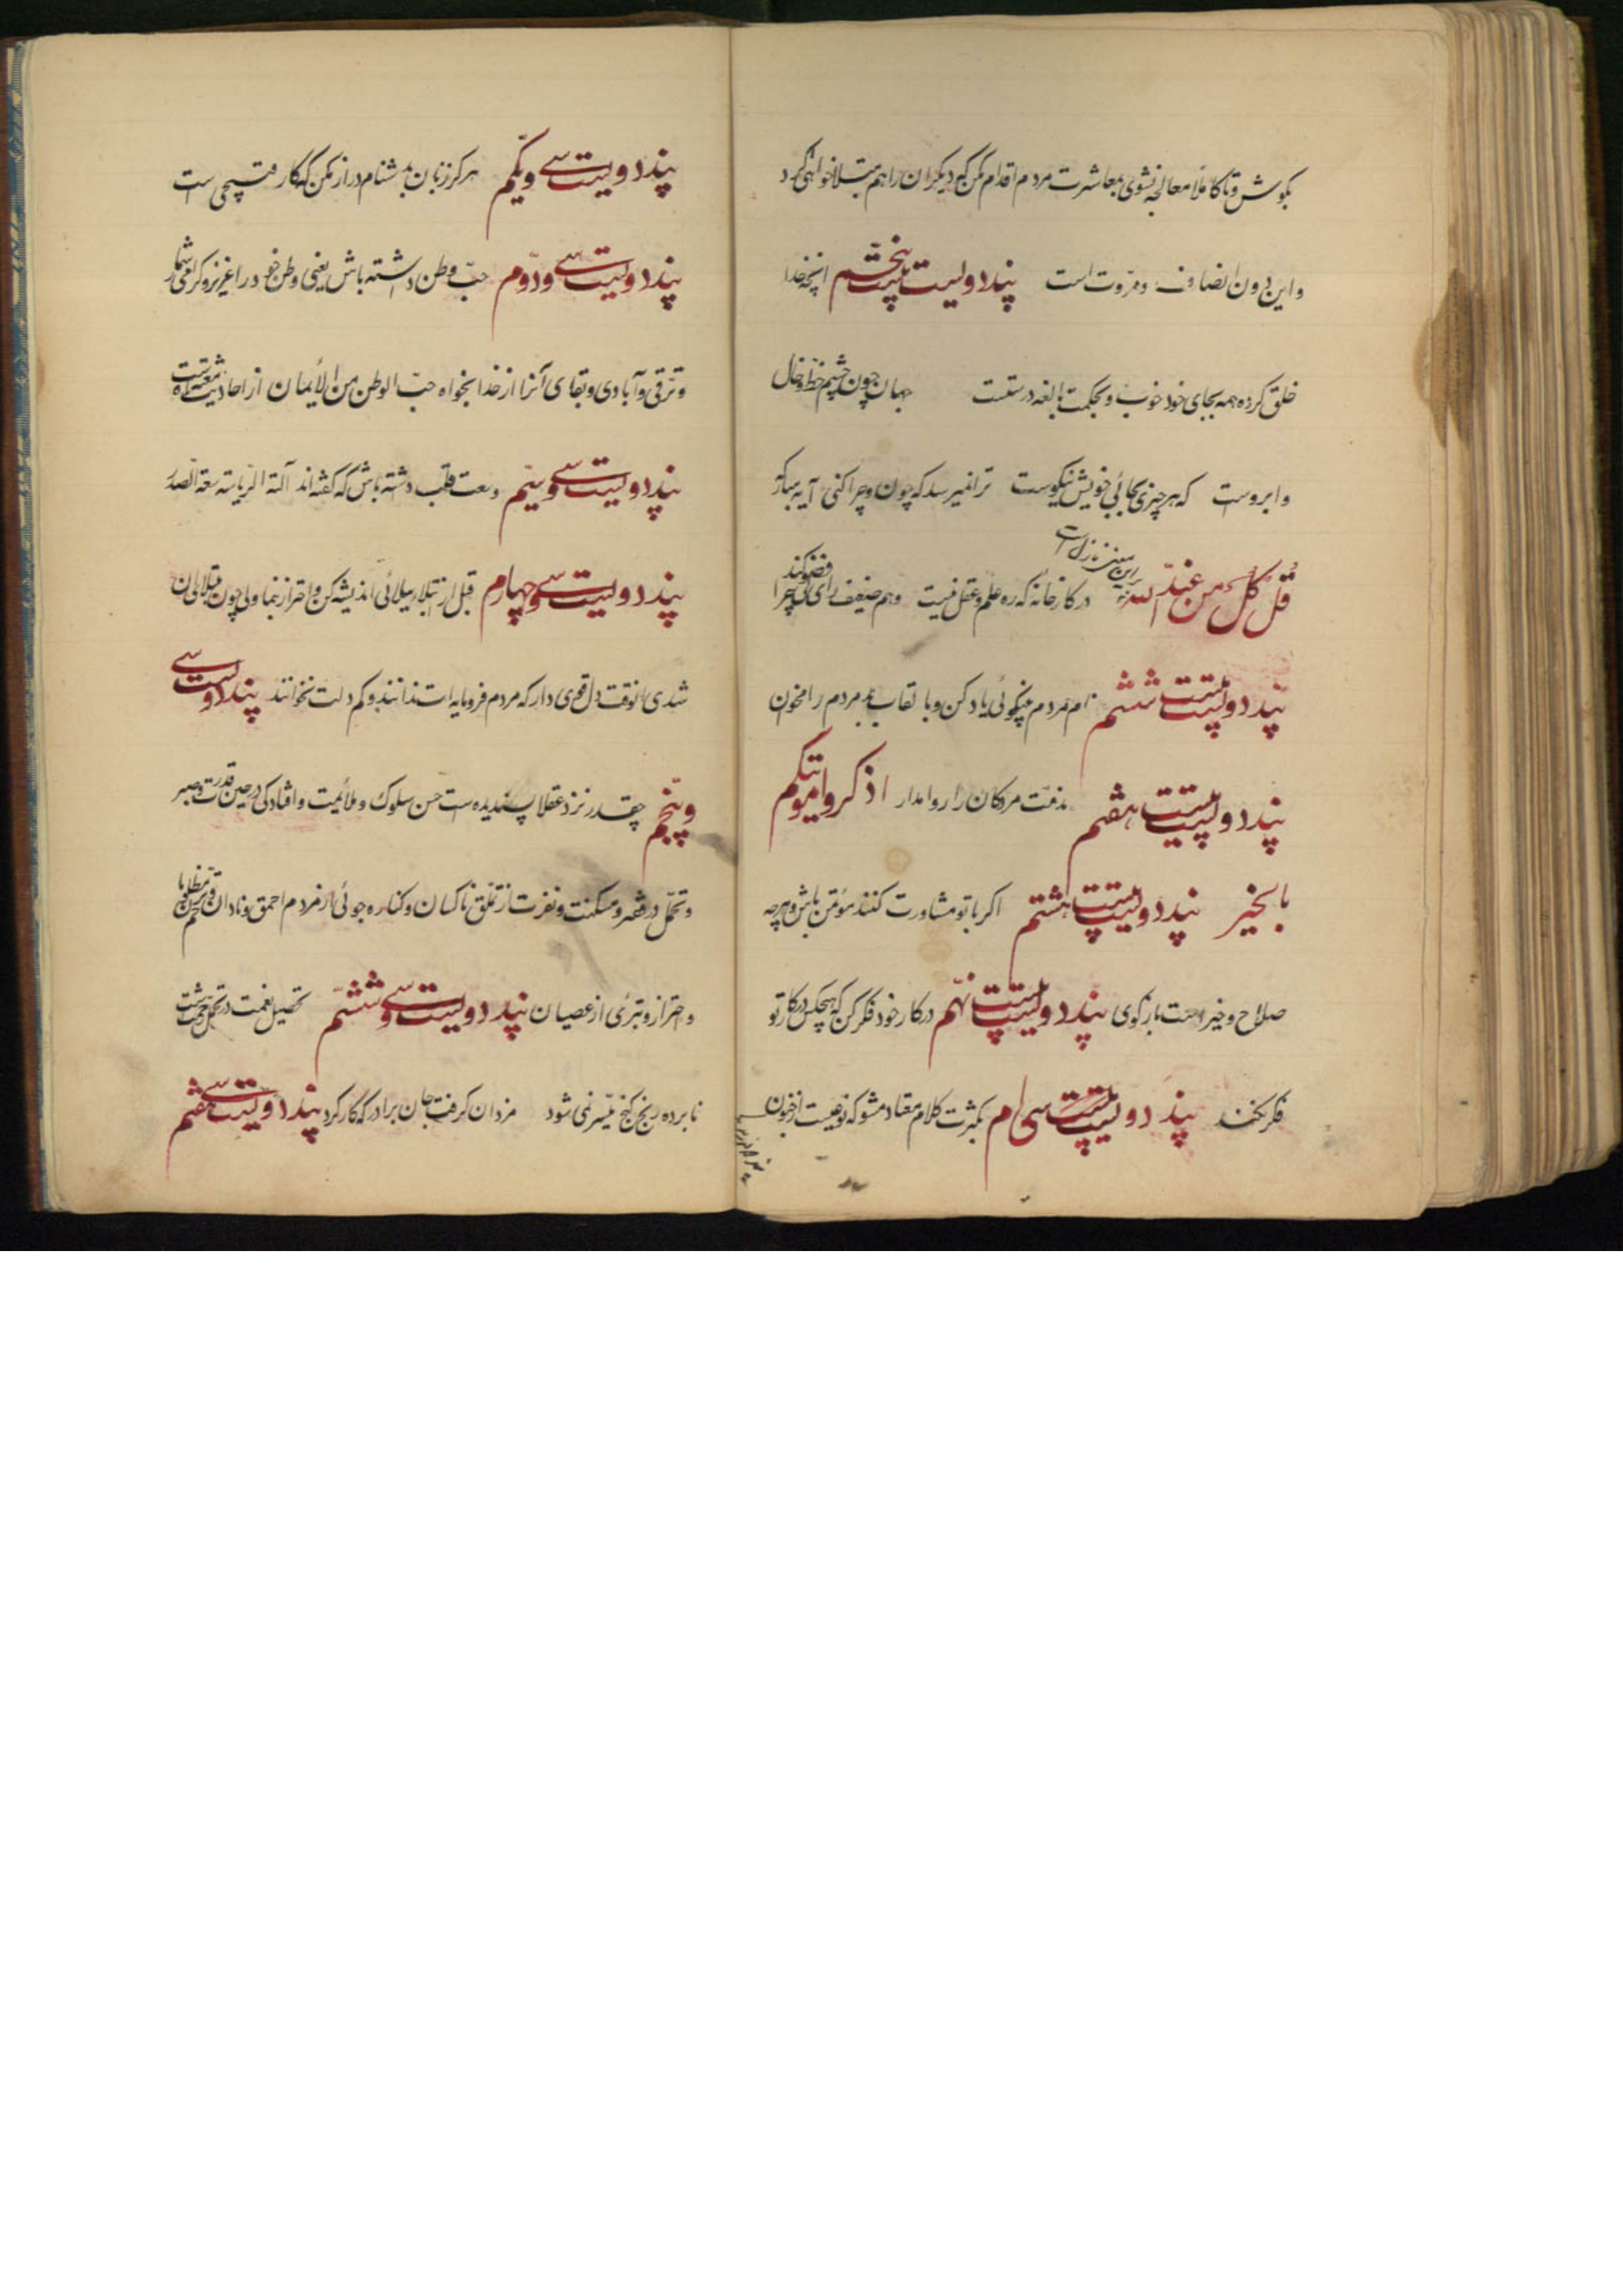 بکوش و تا کاملا معالجه نشوی بمعاشرت مردم اقدام مکن که دیگران را هم مبتلا خواهی کرد
و این دون انصاف و مروت است پند دویست بیست پنجم انچه خدا
خلق کرده همه بجای خود خوب و بحکمت بالغه درستست جهان چون چشم و خط و خال
و ابروست که هر چیزی بجای خویش نیکوست ترا نمیرسد که چون و چرا کنی آیه مبارکه
قُل کُلٌ مِن عِندِ الله در کارخانه که ره علم و عقل نیست وهم ضعیف رای فضولی چرا کند
پند دویست بیست ششم نام مردم بنیکوئی یاد کن و با القاب بد مردم را مخوان
پند دویست بیست هفتم مذمت مردگان را روا مدار اذکروا موتیکم
بالخیر پند دویست بیست هشتم اگر با تو مشاورت کنند مؤتمن باش و هر چه
صلاح و خیر است باز گوی پند دویست بیست نهم در کار خود فکر کن که هیچکس در کار تو
فکر نکند پند دویست سی ام بکثرت کلام معتاد مشو که نوعیست از جنون
پند دویست سی و یکم هرگز زبان بدشنام دراز مکن که کار قبیحی است
پند دویست سی و دوم حبّ وطن داشته باش یعنی وطن خود را عزیز و گرامی شمار
و ترقی و آبادی و بقای آنرا از خدا بخواه حبّ الوطن من الأیمان از احادیث معتبره است
پند دویست سی و سیّم وسعت قلب داشته باش که گفته اند آلة الریاسة سعة الصدر
پند دویست سی و چهارم قبل از ابتلا ببلائی اندیشه کن و احتراز نما ولی چون مبتلای آن
شدی آنوقت دل قوی دار که مردم فرومایه ات ندانند و کم دلت نخوانند پند دویست سی
و پنجم چقدر نزد عقلا پسندیده است حسن سلوک و ملائمت و افتادگی در حین قدرت و صبر
و تحمّل در فقر و مسکنت و نفرت از تملّق ناکسان و کناره جوئی از مردم احمق و نادان
و احتراز و تبرّی از عصیان پند دویست سی و ششم تحصیل نعمت در تحمل زحمت است
نابرده رنج گنج میّسر نمی شود مزد آن گرفت جان برادر که کار کرد پند دویست سی هفتم